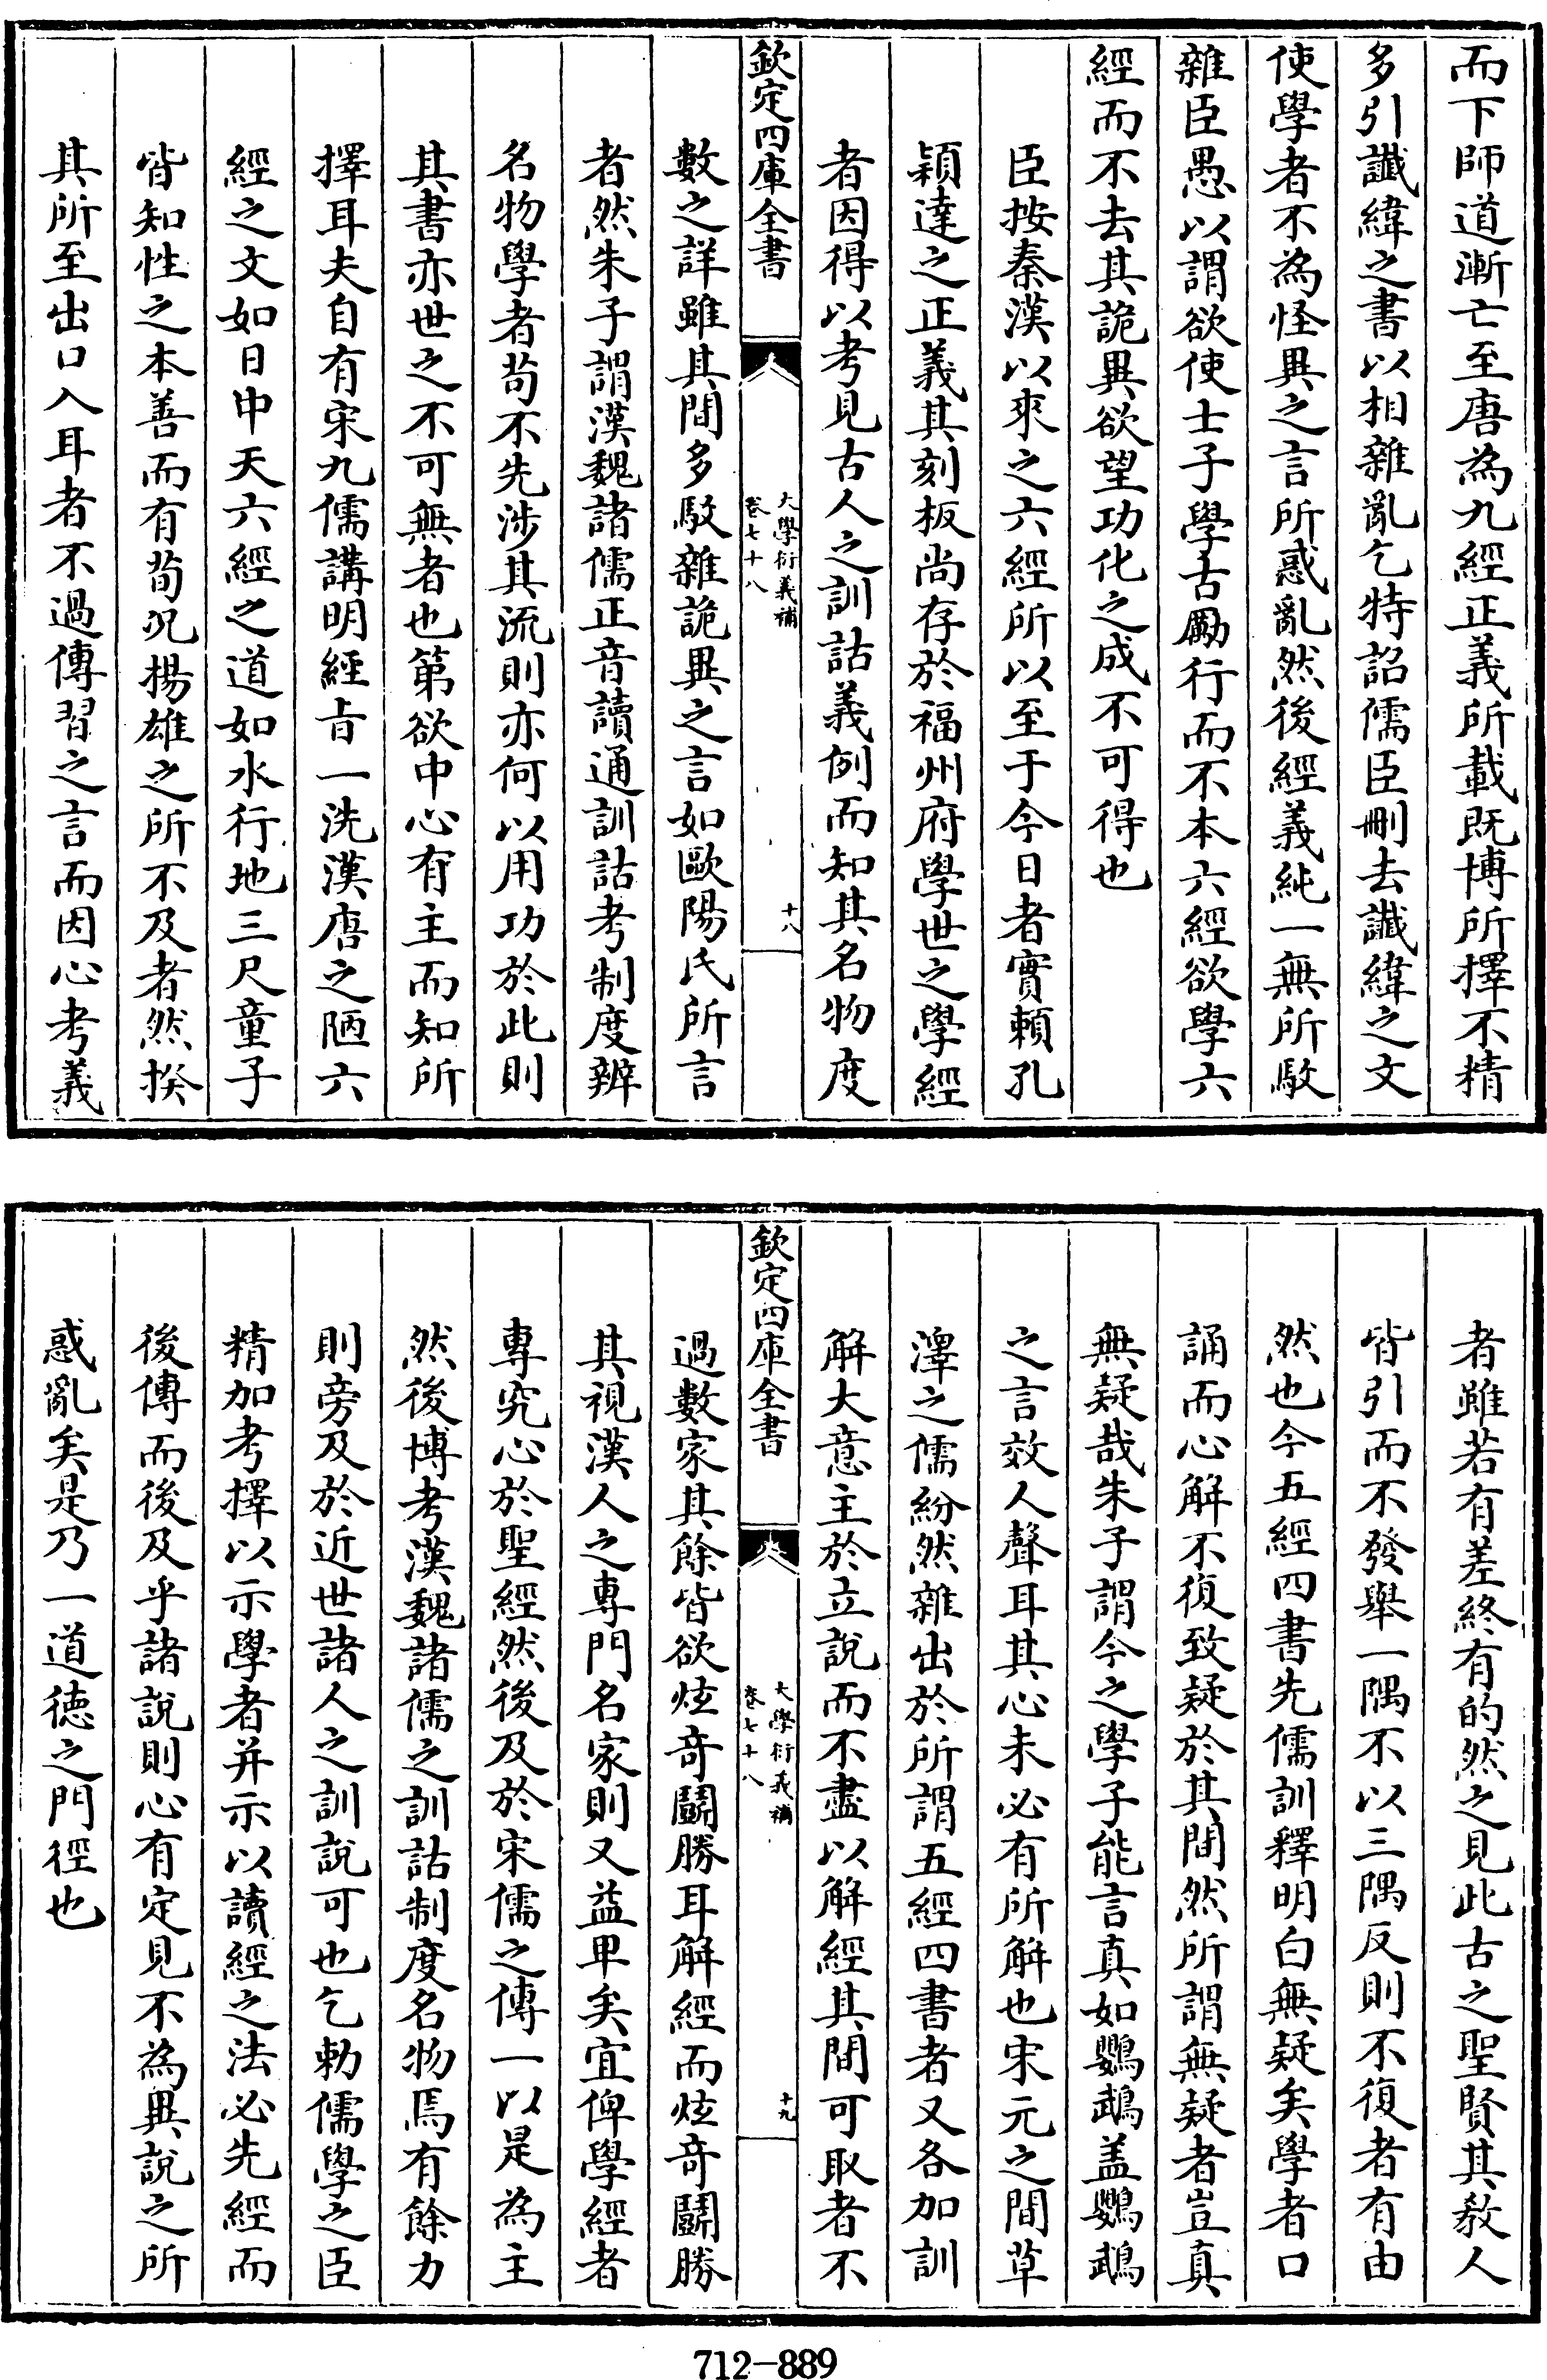 而下師道漸亡至唐為九經正義所載既博所擇不精
多引讖緯之書以相雜亂乞特詔儒臣刪去讖緯之文
使學者不為怪異之言所惑亂然後經義純一無所駁
雜臣愚以謂欲使士子學古勵行而不本六經欲學六
經而不去其詭異欲望功化之成不可得也
臣按秦漢以來之六經所以至于今日者實賴孔
穎達之正義其刻板尚存於福州府學世之學經
者因得以考見古人之訓詁義例而知其名物度
欽定四庫全書
大學衍義補
卷七十八
十八
數之詳雖其間多駁雜詭異之言如歐陽氏所言
者然朱子謂漢魏諸儒正音讀通訓詁考制度辨
名物學者苟不先涉其流則亦何以用功於此則
其書亦世之不可無者也第欲中心有主而知所
擇耳夫自有宋九儒講明經旨一洗漢唐之陋六
經之文如日中天六經之道如水行地三尺童子
皆知性之本善而有荀況揚雄之所不及者然揆
其所至出口入耳者不過傳習之言而因心考義
者雖若有差終有的然之見此古之聖賢其教人
皆引而不發舉一隅不以三隅反則不復者有由
然也今五經四書先儒訓釋明白無疑矣學者口
誦而心解不復致疑於其間然所謂無疑者豈真
無疑哉朱子謂今之學子能言真如鸚鵡盖鸚鵡
之言效人聲耳其心未必有所解也宋元之間草
澤之儒紛然雜出於所謂五經四書者又各加訓
解大意主於立說而不盡以解經其間可取者不
欽定四庫全書
大學衍義補
卷七十八
十九
過數家其餘皆欲炫奇鬬勝耳解經而炫奇鬬勝
其視漢人之專門名家則又益卑矣宜俾學經者
專究心於聖經然後及於宋儒之傳一以是為主
然後博考漢魏諸儒之訓詁制度名物焉有餘力
則旁及於近世諸人之訓說可也乞勅儒學之臣
精加考擇以示學者并示以讀經之法必先經而
後傳而後及乎諸說則心有定見不為異說之所
惑亂矣是乃一道德之門徑也
712-889